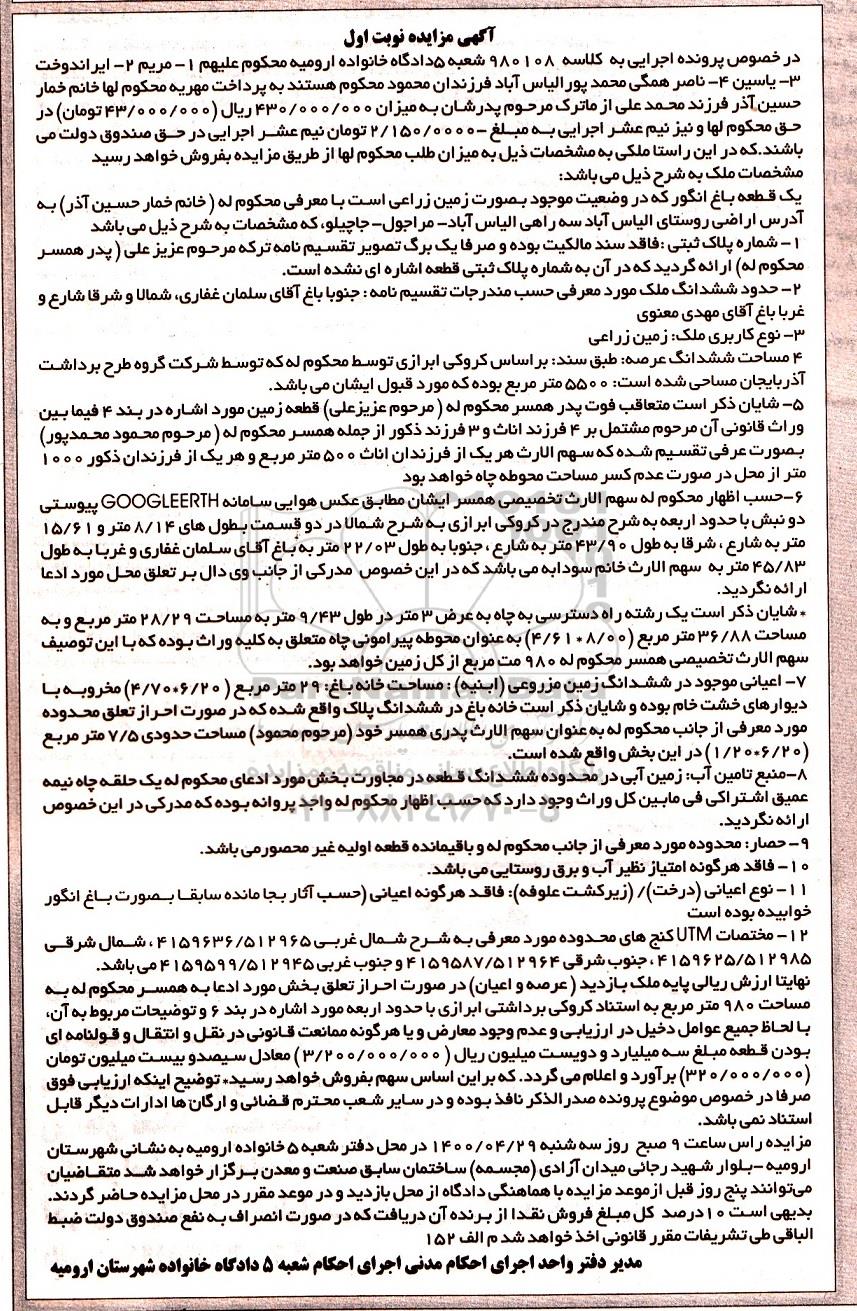 آگهی مزایده نوبت اول
در خصوص پرونده اجرایی به کلاسه ۹۸۰۱۰۸ شعبه ۵دادگاه خانواده ارومیه محکوم علیهم ۱- مریم ۲- ایراندوخت
۳- یاسین ۴- ناصر همگی محمد پورالیاس آباد فرزندان محمود محکوم هستند به پرداخت مهریه محکوم لها خانم خمار
حسین آذر فرزند محمد علی از ماترک مرحوم پدرشان به میزان ۴۳۰/۰۰۰/۰۰۰ ریال (۴۳/۰۰۰/۰۰۰ تومان) در
حق محکوم لها و نیز نیم عشر اجرایی به مبلغ -۲/۱۵۰/۰۰۰۰ تومان نیم عشر اجرایی در حق صندوق دولت می
باشند.که در این راستا ملکی به مشخصات ذیل به میزان طلب محکوم لها از طریق مزایده بفروش خواهد رسید
مشخصات ملک به شرح ذیل می باشد:
یک قطعه باغ انگور که در وضعیت موجود بصورت زمین زراعی است با معرفی محکوم له (خانم خمار حسین آذر) به
آدرس اراضی روستای الیاس آباد سه راهی الیاس آباد- مراجول- جاچیلو، که مشخصات به شرح ذیل می باشد
۱- شماره پلاک ثبتی :فاقد سند مالکیت بوده و صرفا یک برگ تصویر تقسیم نامه ترکه مرحوم عزیز علی (پدر همسر
محکوم له) ارائه گردید که در آن به شماره پلاک ثبتی قطعه اشاره ای نشده است.
۲- حدود ششدانگ ملک مورد معرفی حسب مندرجات تقسیم نامه : جنوبا باغ آقای سلمان غفاری، شمالا و شرقا شارع و
غربا باغ آقای مهدی معنوی
۳- نوع کاربری ملک: زمین زراعی
۴ مساحت ششدانگ عرصه: طبق سند: براساس کروکی ابرازی توسط محکوم له که توسط شرکت گروه طرح برداشت
آذربایجان مساحی شده است: ۵۵۰۰ متر مربع بوده که مورد قبول ایشان می باشد.
۵- شایان ذکر است متعاقب فوت پدر همسر محکوم له (مرحوم عزیزعلی) قطعه زمین مورد اشاره در بند ۴ فیما بین
وراث قانونی آن مرحوم مشتمل بر ۴ فرزند اناث و ۳ فرزند ذکور از جمله همسر محکوم له (مرحوم محمود محمدپور)
بصورت عرفی تقسیم شده که سهم الارث هر یک از فرزندان اناث ۵۰۰ متر مربع و هر یک از فرزندان ذکور ۱۰۰۰
متر از محل در صورت عدم کسر مساحت محوطه چاه خواهد بود
۶-حسب اظهار محکوم له سهم الارث تخصیصی همسر ایشان مطابق عکس هوایی سامانه GOOGLEERTH پیوستی
دو نبش با حدود اربعه به شرح مندرج در کروکی ابرازی به شرح شمالا در دو قسمت بطول های ۸/۱۴ متر و ۱۵/۶۱
متر به شارع ، شرقا به طول ۴۳/۹۰ متر به شارع ، جنوبا به طول ۲۲/۰۳ متر به باغ آقای سلمان غفاری و غربا به طول
۴۵/۸۳ متر به سهم الارث خانم سودابه می باشد که در این خصوص مدرکی از جانب وی دال بر تعلق محل مورد ادعا
ارائه نگردید.
*شایان ذکر است یک رشته راه دسترسی به چاه به عرض ۳ متر در طول ۹/۴۳ متر به مساحت ۲۸/۲۹ متر مربع و به
مساحت ۳۶/۸۸ متر مربع (۸/۰۰*۴/۶۱) به عنوان محوطه پیرامونی چاه متعلق به کلیه وراث بوده که با این توصیف
سهم الارث تخصیصی همسر محکوم له ۹۸۰ مت مربع از کل زمین خواهد بود.
۷- اعیانی موجود در ششدانگ زمین مزروعی (ابنیه) : مساحت خانه باغ: ۲۹ متر مربع (۶/۲۰*۴/۷۰) مخروبه با
دیوارهای خشت خام بوده و شایان ذکر است خانه باغ در ششدانگ پلاک واقع شده که در صورت احراز تعلق محدوده
مورد معرفی از جانب محکوم له به عنوان سهم الارث پدری همسر خود (مرحوم محمود) مساحت حدودی ۷/۵ متر مربع
(۶/۲۰*۱/۲۰) در این بخش واقع شده است.
۸-منبع تامین آب: زمین آبی در محدوده ششدانگ قطعه در مجاورت بخش مورد ادعای محکوم له یک حلقه چاه نیمه
عمیق اشتراکی فی مابین کل وراث وجود دارد که حسب اظهار محکوم له واجد پروانه بوده که مدرکی در این خصوص
ارائه نگردید.
۹- حصار: محدوده مورد معرفی از جانب محکوم له و باقیمانده قطعه اولیه غیر محصورمی باشد.
۱۰- فاقد هرگونه امتیاز نظیر آب و برق روستایی می باشد.
۱۱- نوع اعیانی (درخت)/ (زیرکشت علوفه): فاقد هرگونه اعیانی (حسب آثار بجا مانده سابقا بصورت باغ انگور
خوابیده بوده است
۱۲- مختصات UTM کنج های محدوده مورد معرفی به شرح شمال غربی ۴۱۵۹۶۳۶/۵۱۲۹۶۵ ، شمال شرقی
۴۱۵۹۶۲۵/۵۱۲۹۸۵ ، جنوب شرقی ۴۱۵۹۵۸۷/۵۱۲۹۶۴ و جنوب غربی ۴۱۵۹۵۹۹/۵۱۲۹۴۵ می باشد.
نهایتا ارزش ریالی پایه ملک بازدید (عرصه و اعیان) در صورت احراز تعلق بخش مورد ادعا به همسر محکوم له به
مساحت ۹۸۰ متر مربع به استناد کروکی برداشتی ابرازی با حدود اربعه مورد اشاره در بند ۶ و توضیحات مربوط به آن،
با لحاظ جمیع عوامل دخیل در ارزیابی و عدم وجود معارض و یا هرگونه ممانعت قانونی در نقل و انتقال و قولنامه ای
بودن قطعه مبلغ سه میلیارد و دویست میلیون ریال (۳/۲۰۰/۰۰۰/۰۰۰) معادل سیصدو بیست میلیون تومان
(۳۲۰/۰۰۰/۰۰۰) برآورد و اعلام می گردد. که بر این اساس سهم بفروش خواهد رسید* توضیح اینکه ارزیابی فوق
صرفا در خصوص موضوع پرونده صدرالذکر نافذ بوده و در سایر شعب محترم قضائی و ارگان ها ادارات دیگر قابل
استناد نمی باشد.
مزایده راس ساعت ۹ صبح روز سه شنبه ۱۴۰۰/۰۴/۲۹ در محل دفتر شعبه ۵ خانواده ارومیه به نشانی شهرستان
ارومیه -بلوار شهید رجائی میدان آزادی (مجسمه) ساختمان سابق صنعت و معدن برگزار خواهد شد متقاضیان
می‌توانند پنج روز قبل ازموعد مزایده با هماهنگی دادگاه از محل بازدید و در موعد مقرر در محل مزایده حاضر گردند.
بدیهی است ۱۰درصد کل مبلغ فروش نقدا از برنده آن دریافت که در صورت انصراف به نفع صندوق دولت ضبط
الباقی طی تشریفات مقرر قانونی اخذ خواهد شد م الف ۱۵۲
مدیر دفتر واحد اجرای احکام مدنی اجرای احکام شعبه ۵ دادگاه خانواده شهرستان ارومیه